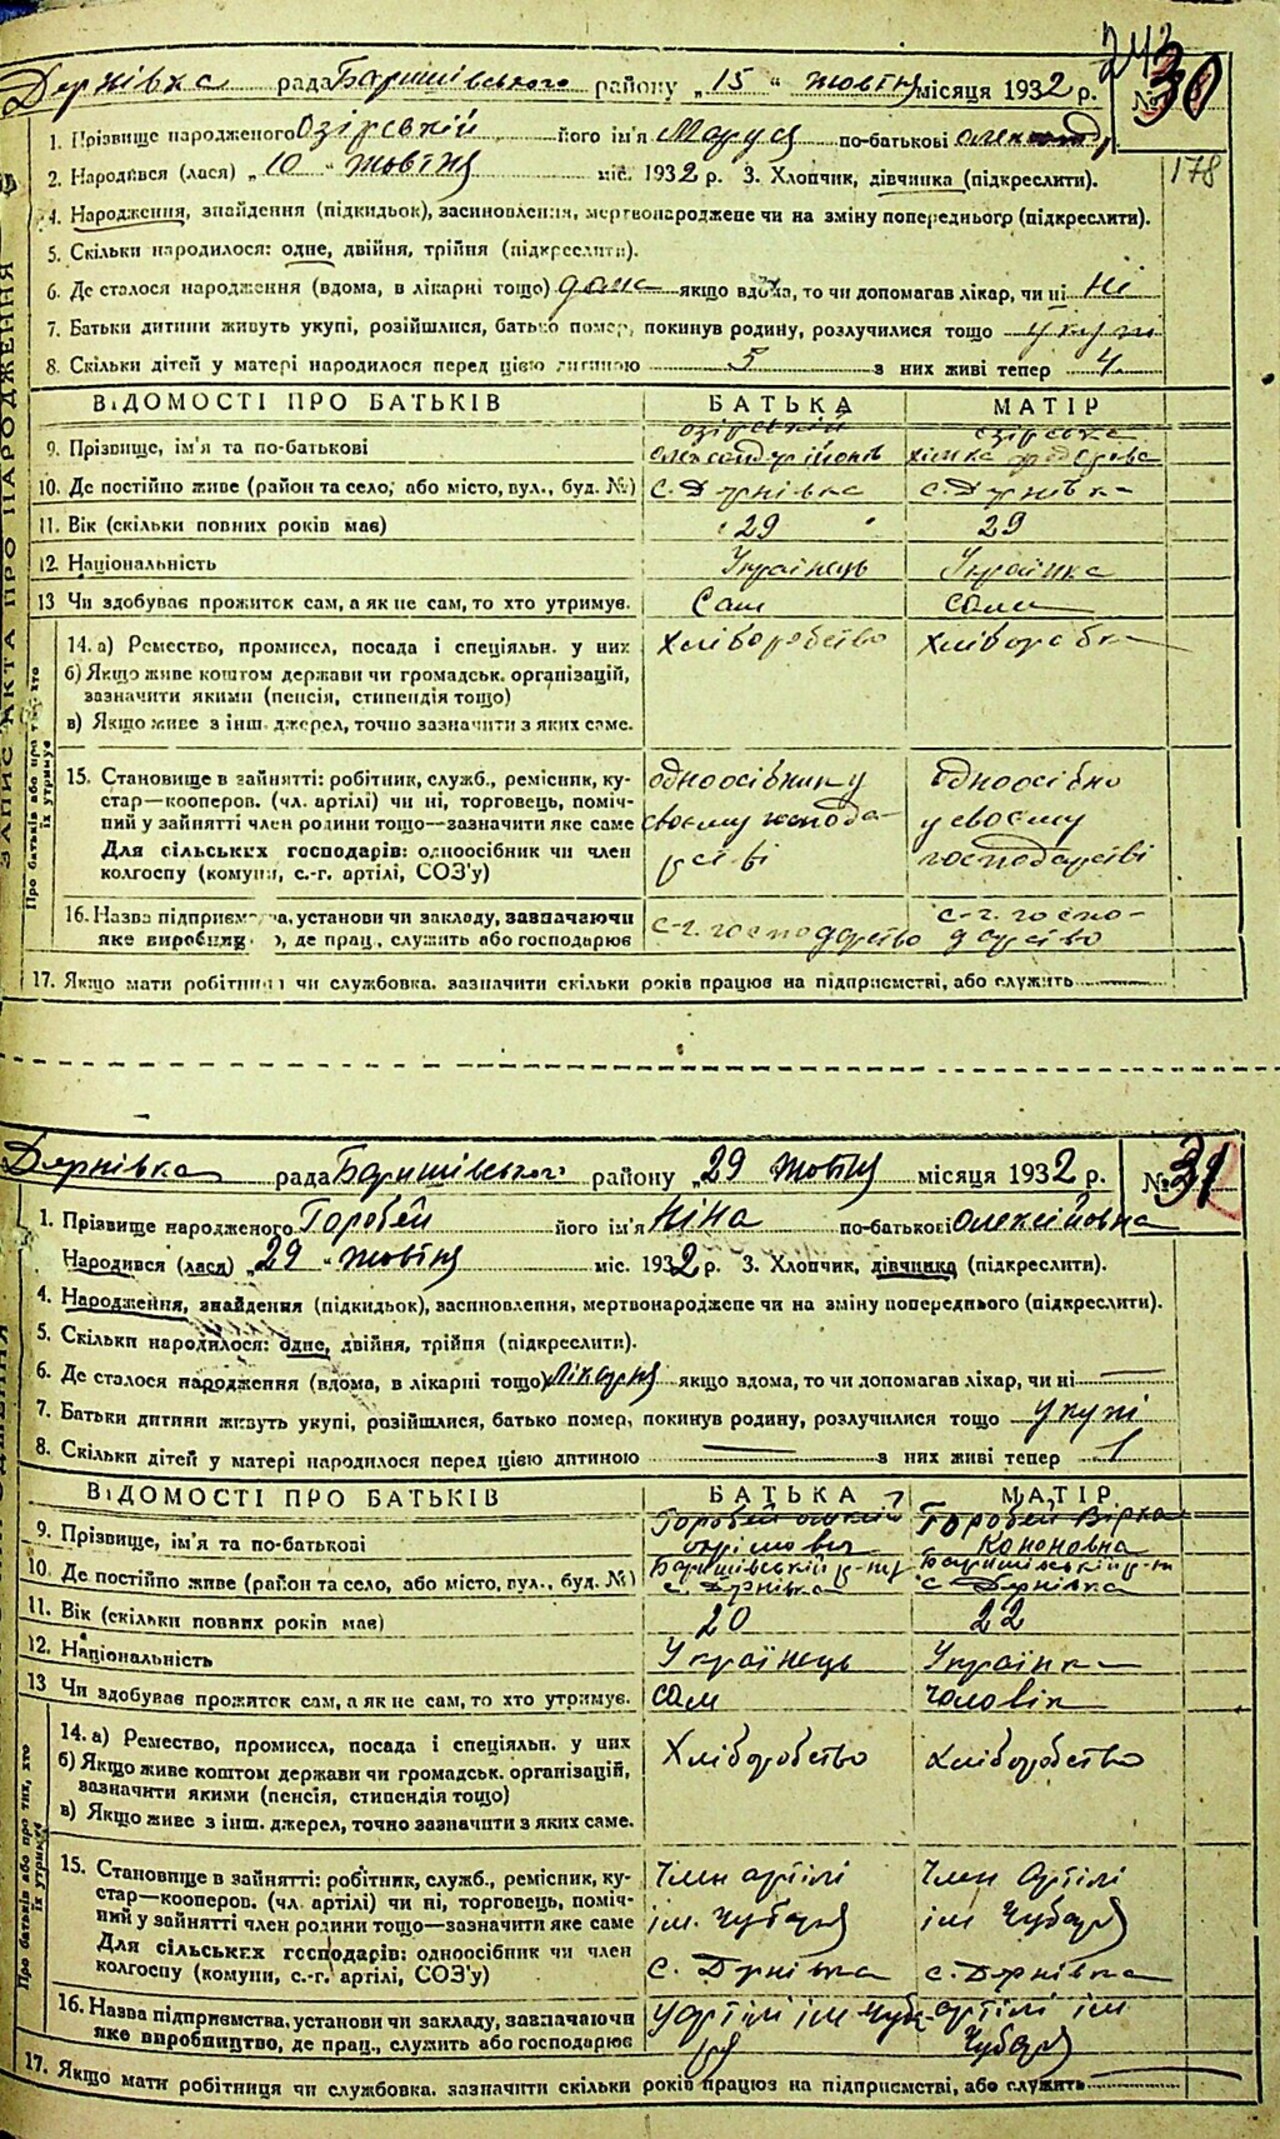 243
Дернівка рада Баришівського району „15 “ жовтня місяця 1932 р. № 30
1. Прізвище народженого Озірський його ім'я Маруся по-батькові
178
2. Народився (лася) „10 “ жовтня міс. 1932 р. 3. Хлопчик, дівчинка (підкреслити).
4. Народження, знайдення (підкидьок), засиновлення, мертвонароджене чи на зміну попереднього (підкреслити).
5. Скільки народилося: одне, двійня, трійня (підкреслити).
6. Де сталося народження (вдома, в лікарні тощо) дома якщо вдома, то чи допомагав лікар, чи ні Ні
7. Батьки дитини живуть укупі, розійшлися, батько помер, покинув родину, розлучилися тощо укупі
8. Скільки дітей у матері народилося перед цією дитиною 5 з них живі тепер 4
ВІДОМОСТІ ПРО БАТЬКІВ БАТЬКА МАТІР
озірський озірська
9. Прізвище, ім'я та по-батькові
10. Де постійно живе (район та село, або місто, вул., буд. №) с. Дернівка с. Дернівка
11. Вік (скільки повних років має) 29 29
12. Національність Українець Українка
13 Чи здобуває прожиток сам, а як не сам, то хто утримує. Сам сама
14. а) Ремество, промисел, посада і спеціяльн. у них хліборобство хлібороб
б) Якщо живе коштом держави чи громадськ. організацій,
зазначити якими (пенсія, стипендія тощо)
в) Якщо живе з інш. джерел, точно зазначити з яких саме.
15. Становище в зайнятті: робітник, служб., ремісник, ку- одноосібник у одноосібно
стар—кооперов. (чл. артілі) чи ні, торговець, поміч-
ний у зайнятті член родини тощо—зазначити яке саме своєму господа- у своєму
Для сільських господарів: одноосібник чи член рстві господарстві
колгоспу (комуни, с.-г. артілі, СОЗ'у)
16. Назва підприємства, установи чи закладу, зазначаючи с-г. господарство с-г. госпо-
яке виробництво, де прац., служить або господарює дарство
17. Якщо мати робітниця чи службовка, зазначити скільки років працює на підприємстві, або служить
ЗАПИС АКТА ПРО НАРОДЖЕННЯ
Про батьків або про тих, хто
їх утримує
Дернівка рада Баришівського району „29 жовтня місяця 1932 р. № 31
1. Прізвище народженого Горобей його ім'я Ніна по-батькові Олексійовна
Народився (лася) „29 “ жовтня міс. 1932 р. 3. Хлопчик, дівчинка (підкреслити).
4. Народження, знайдення (підкидьок), засиновлення, мертвонароджене чи на зміну попереднього (підкреслити).
5. Скільки народилося: одне, двійня, трійня (підкреслити).
6. Де сталося народження (вдома, в лікарні тощо) лікарня якщо вдома, то чи допомагав лікар, чи ні
7. Батьки дитини живуть укупі, розійшлися, батько помер, покинув родину, розлучилися тощо укупі
8. Скільки дітей у матері народилося перед цією дитиною з них живі тепер 1
ВІДОМОСТІ ПРО БАТЬКІВ БАТЬКА МАТІР
Горобей Горобей Вірка
9. Прізвище, ім'я та по-батькові Кононовна
Баришівський р-н Баришівський р-н
10. Де постійно живе (район та село, або місто, вул., буд. №) с. Дернівка с Дернівка
11. Вік (скільки повних років має) 20 22
12. Національність Українець Українка
13 Чи здобуває прожиток сам, а як не сам, то хто утримує. сам чоловік
14. а) Ремество, промисел, посада і спеціяльн. у них Хліборобство хліборобство
б) Якщо живе коштом держави чи громадськ. організацій,
зазначити якими (пенсія, стипендія тощо)
в) Якщо живе з інш. джерел, точно зазначити з яких саме.
15. Становище в зайнятті: робітник, служб., ремісник, ку- член артілі член артілі
стар—кооперов. (чл. артілі) чи ні, торговець, поміч-
ний у зайнятті член родини тощо—зазначити яке саме ім. Чубаря ім Чубаря
Для сільських господарів: одноосібник чи член
колгоспу (комуни, с.-г. артілі, СОЗ'у) с. Дернівка с. Дернівка
16. Назва підприємства, установи чи закладу, зазначаючи у артілі ім Чуба- артілі ім
яке виробництво, де прац., служить або господарює ря Чубаря
17. Якщо мати робітниця чи службовка, зазначити скільки років працює на підприємстві, або служить
Про батьків або про тих, хто
їх утримує